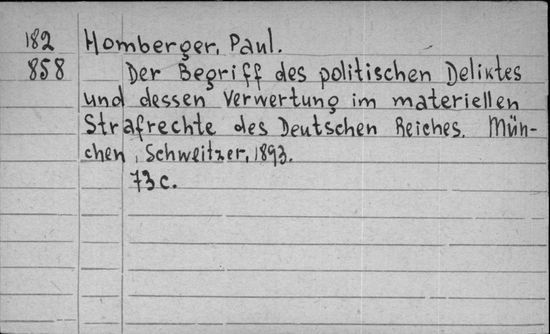 182 Homberger, Paul.
858 Der Begriff des politischen Deliktes
und dessen Verwertung im materiellen
Strafrechte des Deutschen Reiches. Mün-
chen, Schweitzer, 1893.
73 c.